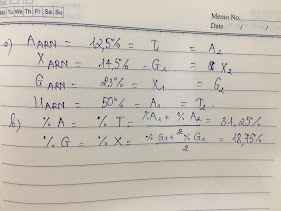 Mo Tu We Th Fr Sa Su
Memo No.
Date / /
a) A ARN = 12,5% = T₁ = A₂
X ARN = 14,5% = G₁ = X₂
G ARN = 23% = X₁ = G₂
U ARN = 50% = A₁ = T₂
b) % A = % T = %A₁ + % A₂ / 2 = 31,25%
% G = % X = % G₁ + % G₂ / 2 = 18,75%